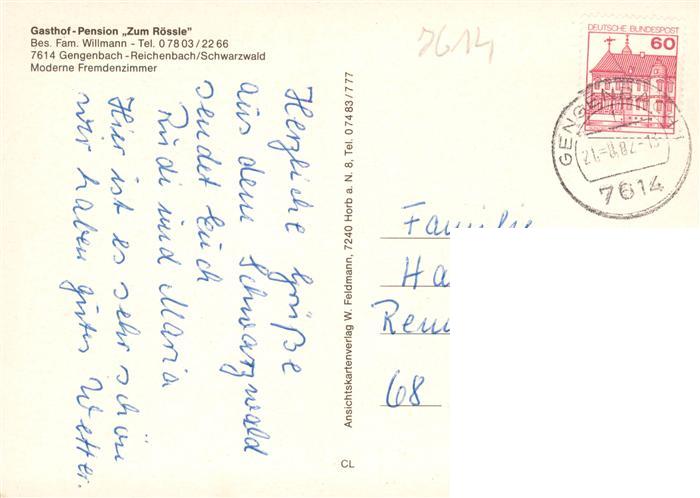 Gasthof-Pension „Zum Rössle"
Bes. Fam. Willmann - Tel. 0 78 03 / 22 66
7614 Gengenbach - Reichenbach/Schwarzwald
Moderne Fremdenzimmer
7614
DEUTSCHE BUNDESPOST
60
7614
Herzliche Grüße
aus dem Schwarzwald
sendet Euch
Rudi und Maria
Hier ist es sehr schön
wir haben gutes Wetter.
Ansichtskartenverlag W. Feldmann, 7240 Horb a. N. 8, Tel. 0 74 83 / 7 77
CL
Familie
Ha
Rem
68